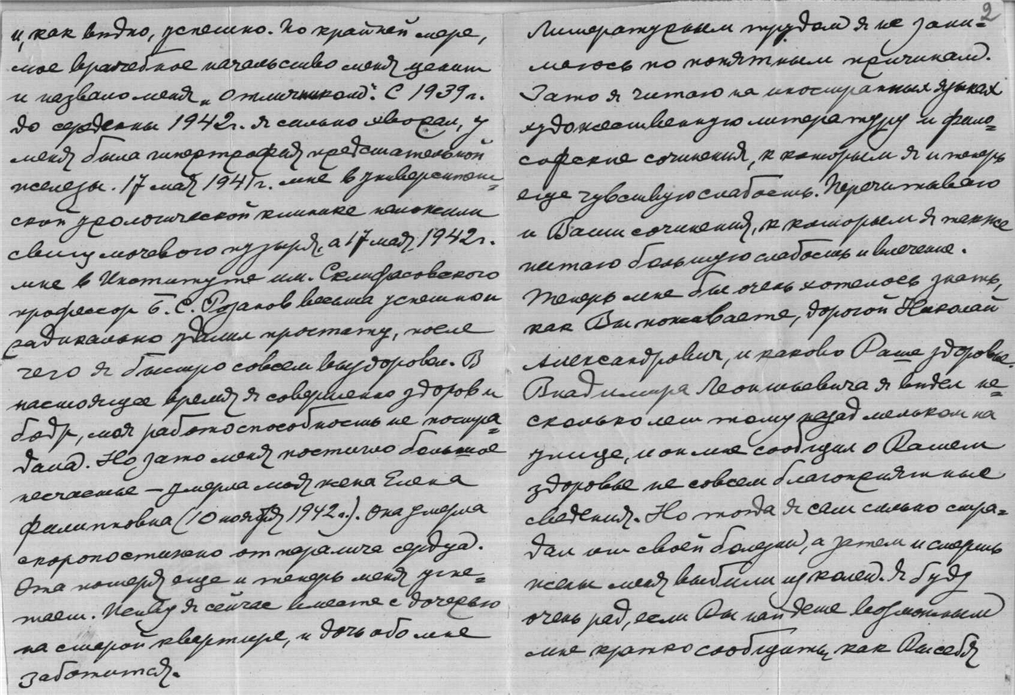 и, как видно, успешно. По крайней мере,
мое врачебное начальство меня ценит
и назвало меня „отличником". С 1939 г.
до середины 1942 г. я сильно хворал, у
меня была гипертрофия предстательной
железы. 17 мая 1941 г. мне в университет-
ской урологической клинике наложили
свищ мочевого пузыря, а 17 мая 1942 г.
мне в Институте им. Склифасовского
профессор Б. С. Розанов весьма успешно и
радикально удалил простату, после
чего я быстро совсем выздоровел. В
настоящее время я совершенно здоров и
бодр, моя работоспособность не постра-
дала. Но зато меня постигло большое
несчастье – умерла моя жена Елена
Филипповна (10 ноября 1942 г.). Она умерла
скоропостижно от паралича сердца.
Эта потеря еще и теперь меня угне-
таем. Живу я сейчас вместе с дочерью
на старой квартире, и дочь обо мне
заботится.
2
Литературным трудом я не зани-
маюсь по понятным причинам.
Зато я читаю на иностранных языках
художественную литературу и фило-
софские сочинения, к которым я и теперь
еще чувствую слабость. Перечитываю
и Ваши сочинения, к которым я также
питаю большую слабость и влечение.
Теперь мне бы очень хотелось знать,
как Вы поживаете, дорогой Николай
Александрович, и каково Ваше здоровье.
Владимира Леонтьевича я видел не-
сколько лет тому назад мельком на
улице, и он мне сообщил о Вашем
здоровье не совсем благоприятные
сведения. Но тогда я сам сильно стра-
дал от своей болезни, а затем и смерть
жены меня выбили из колеи. Я буду
очень рад, если Вы найдете возможным
мне кратко сообщить, как Вы себя